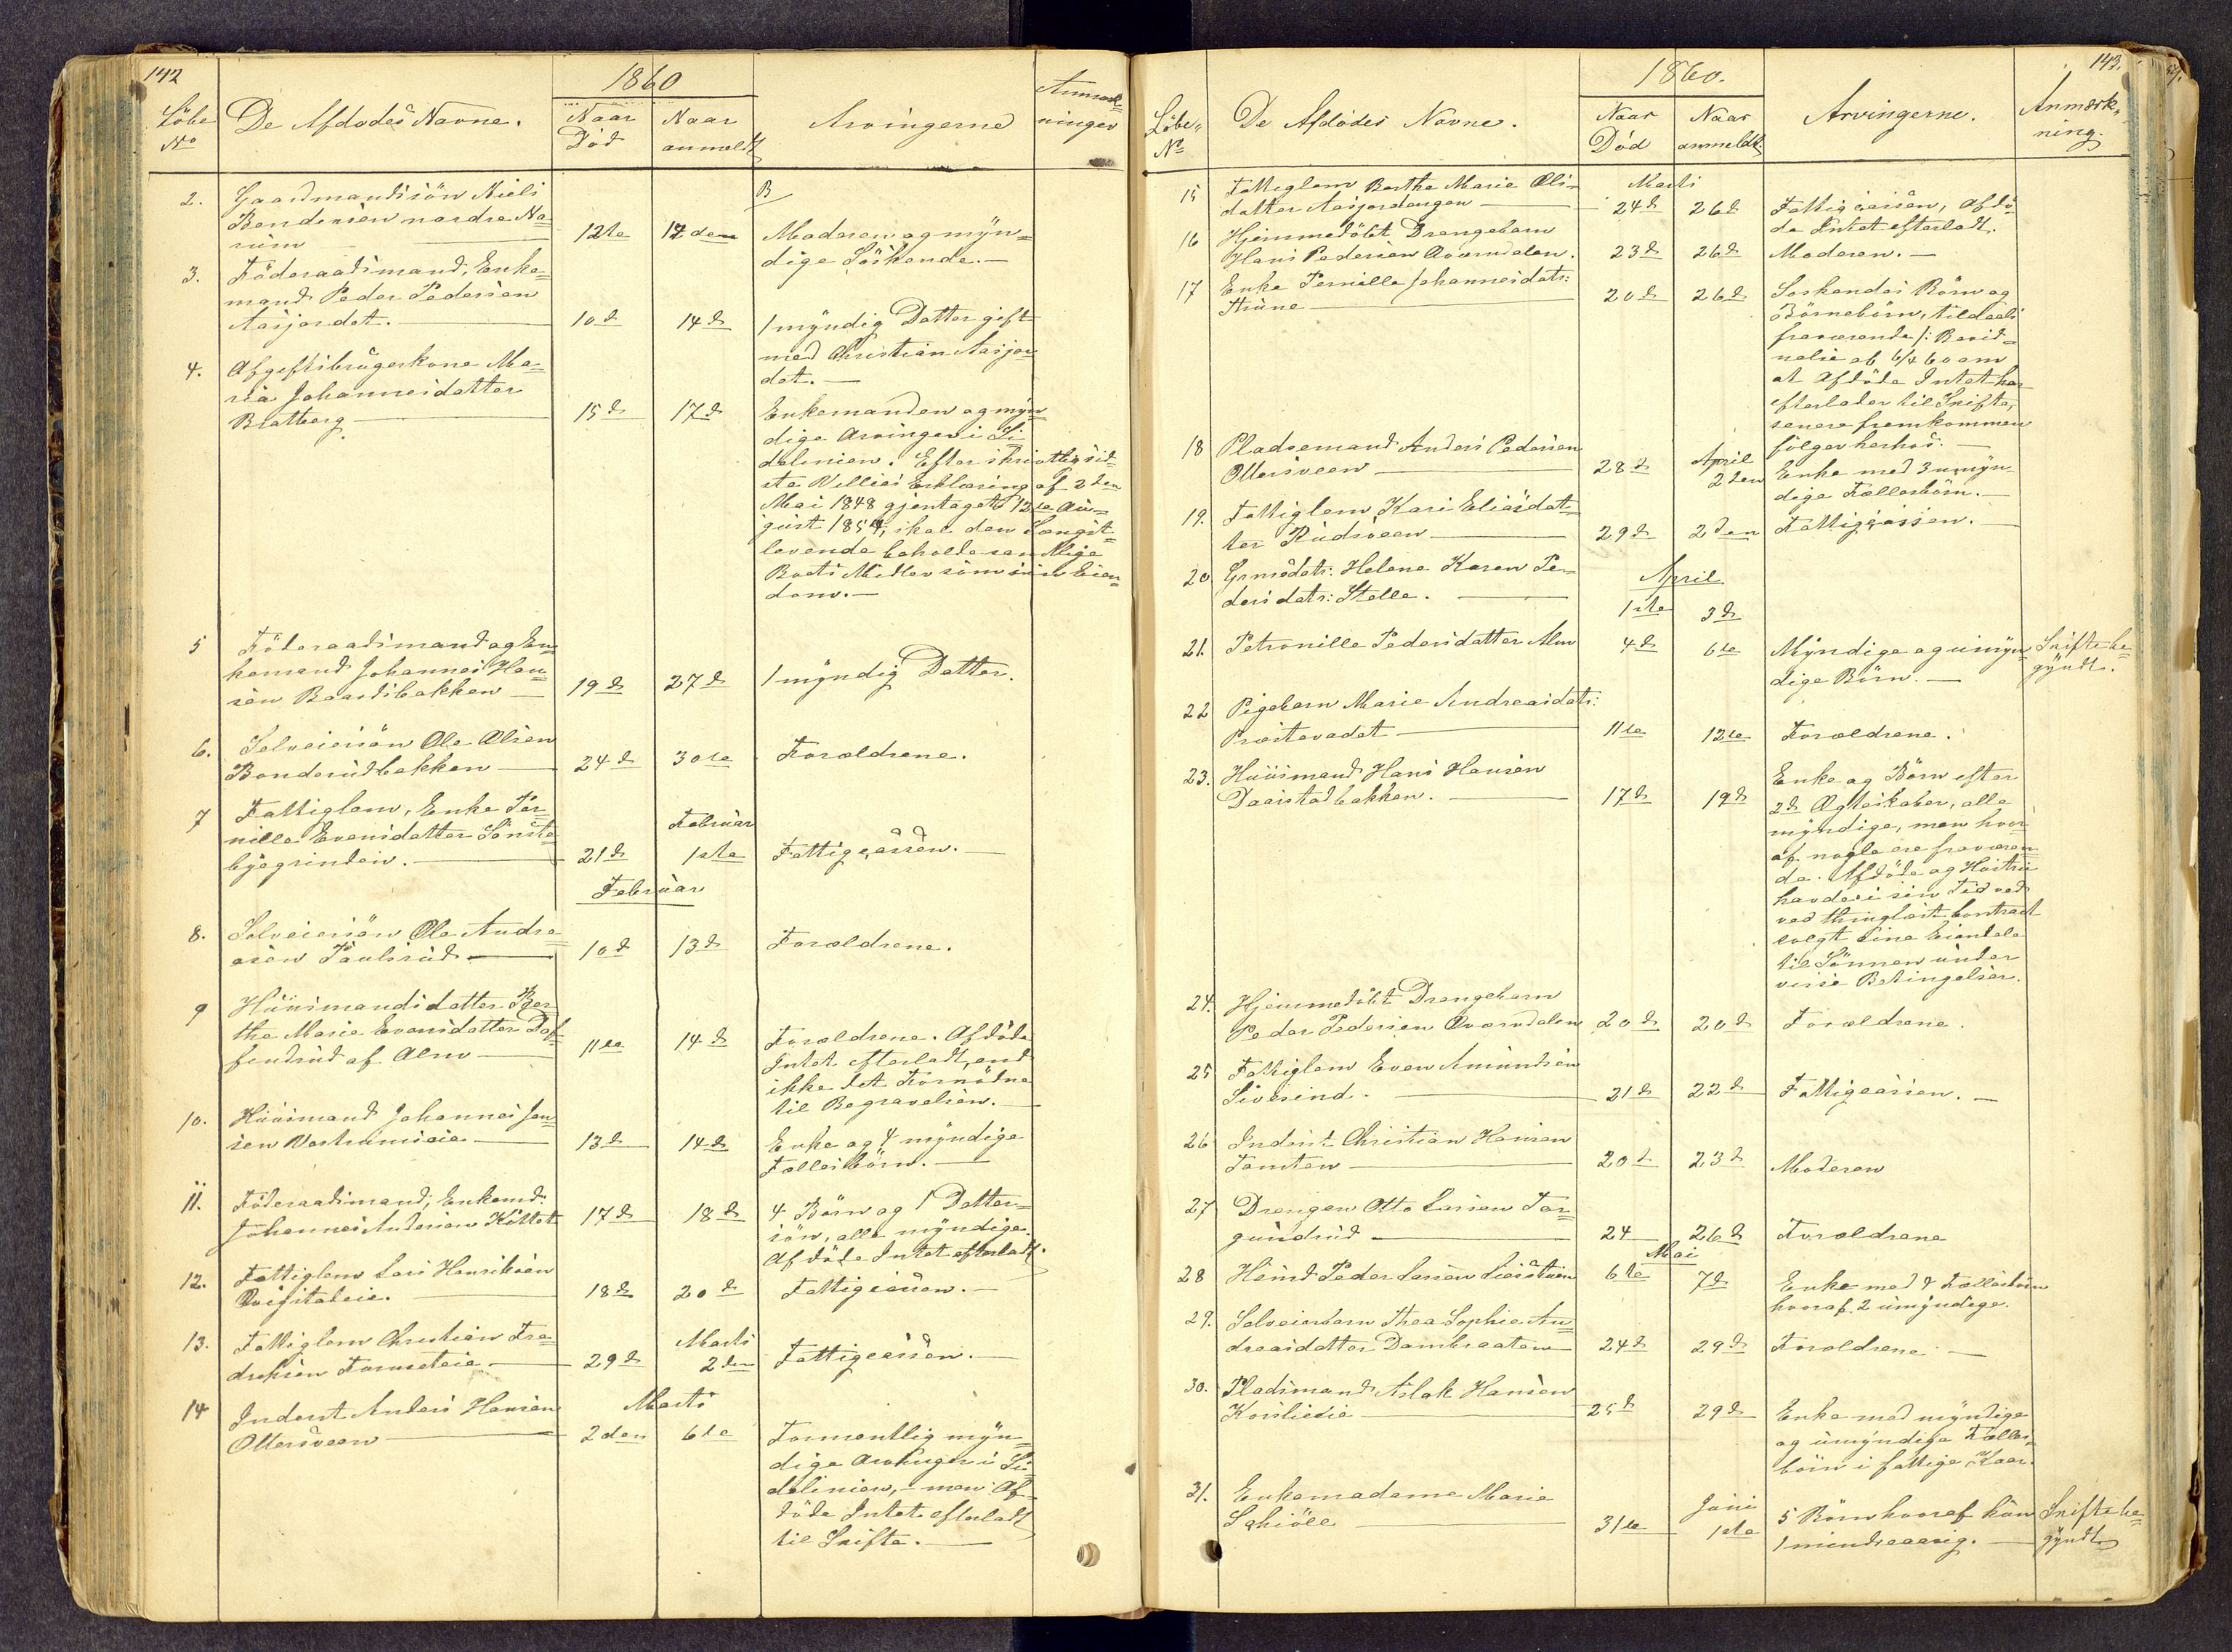 142
1860
Löbe
No
De Afdödes Navne.
Naar
Död
Naar
anmeldt
Arvingerne
Anmærk=
ninger
2.
Gaardmandssön Niels
Bendensen nordre Na=
rum
12te
12 den
Moderen og myn=
dige Söskende.—
3.
Föderaadsmand, Enke=
mand Peder Pedersen
Aasjordet.
10d
14d
1 myndig Datter gift
med Christian Aasjor=
det.—
4.
Afgiftsbrugerkone Ma=
ria Johannesdatter
Bratberg
15d
17d
Enkemanden og myn=
dige Arvinger i Si=
delinien. Efter skriftlig sid=
ste Villies Erklæring af 2den
Mai 1848 gjentaget 12te Au=
gust 1854, skal den Længst=
levende beholde samtlige
Boets Midler som sin Eien=
dom.—
5
Föderaadsmand og En=
kemand Johannes Han=
sen Baardsbakken
19d
27d
1 myndig Datter.
6.
Selveiersön Ole Olsen
Bonderudbakken
24d
30te
Forældrene.
7
Fattiglem, Enke Per=
nille Evensdatter Sönste=
byegrinden.
21d
Februar
1ste
Fattigcassen.—
Februar
8.
Selveiersön Ole Andre=
asen Paulsrud
10d
13d
Forældrene.
9
Huusmandsdatter Ber=
the Marie Evensdatter
af Alm
11te
14d
Forældrene. Afdöde
Intet efterladt, end
ikke det Fornödne
til Begravelsen.—
10.
Huusmand Johannes Jen=
sen
13d
14d
Enke og 4 myndige
Fællesbörn.—
11.
Föderaadsmand, Enkemd.
Johannes Andersen
17d
18d
4 Börn og 1 Datter=
sön, alle myndige.
Afdöde Intet efterladt.
12.
Fattiglem Lars Henriksen
18d
20d
Fattigcassen.—
13.
Fattiglem Christian Fre=
driksen
29d
Marts
2den
Fattigcassen.—
14
Inderst Anders Hansen
Ottersveen
Marts
2den
6te
Formentlig myn=
dige Arvinger i Si=
delinien,— men Af=
döde Intet efterladt
til Skifte.—
143.
1860.
Löbe"
No
De Afdödes Navne.
Naar
Död
Naar
anmeldt
Arvingerne.
Anmærk"
ning.
15
Fattiglem Berthe Marie Ols=
datter Aasjordengen
Marts
24d
26d
Fattigcassen, Afdö=
de Intet efterladt.
16
Hjemmedöbt Drengebarn
Hans Pedersen Qværndalen.
23d
26d
Moderen.—
17
Enke Pernille Johannesdatr:
20d
26d
Söskendes Börn og
Börnebörn, tildeels
fraværende
af 6/4 60 om
at Afdöde Intet har
efterladt til Skifte,
senere fremkommen
fölger herhos.—
18
Pladsemand Anders Pedersen
Ottersveen
28d
April
2den
Enke med 3 umyn=
dige Fællesbörn.—
19.
Fattiglem Kari Eliasdat=
ter Rudsveen
29d
2den
Fattigcassen.—
20
Grmsdatr: Helene Karen Pe=
dersdatr: Stelle.
April
1ste
3d
21.
Petronille Pedersdatter Alm
4d
6te
Myndige og umyn=
dige Börn.—
Skifte be=
gyndt.
22
Pigebarn Marie Andreasdatr:
Præstevadet
11te
12te
Forældrene.
23.
Huusmand Hans Hansen
Daarstadbakken.
17d
19d
Enke og Börn efter
2de Ægteskaber, alle
myndige, men hvor=
af nogle ere fraværen=
de. Afdöde og Hustru
havde i sin Tid ved
ved thinglæst Contract
solgt sine Eiendele
til Sönnen under
visse Betingelser.
24.
Hjemmedöbt Drengebarn
Peder Pedersen Qværndalen
20d
20d
Forældrene.
25
Fattiglem Even Amundsen
Sivesind.
21d
22d
Fattigcassen.—
26
Inderst Christian Hansen
Tomten
20d
23d
Moderen
27
Drengen Otto Larsen Tor=
gundrud
24
26d
Forældrene
28
Hsmd Peder Larsen
6te
Mai
7d
Enke med 7 Fællesbörn
hvoraf 2 umyndige.
29.
Selveierbarn Thea Sophie An=
dreasdatter Dambraaten
24d
29d
Forældrene—
30.
Pladsmand Aslak Hansen
25d
29d
Enke med myndige
og umyndige Fælles=
börn i fattige Kaar.
31.
Enkemadame Marie
Schiöll
31te
Juni
1ste
5 Börn hvoraf kun
1 mindreaarig.—
Skifte be=
gyndt